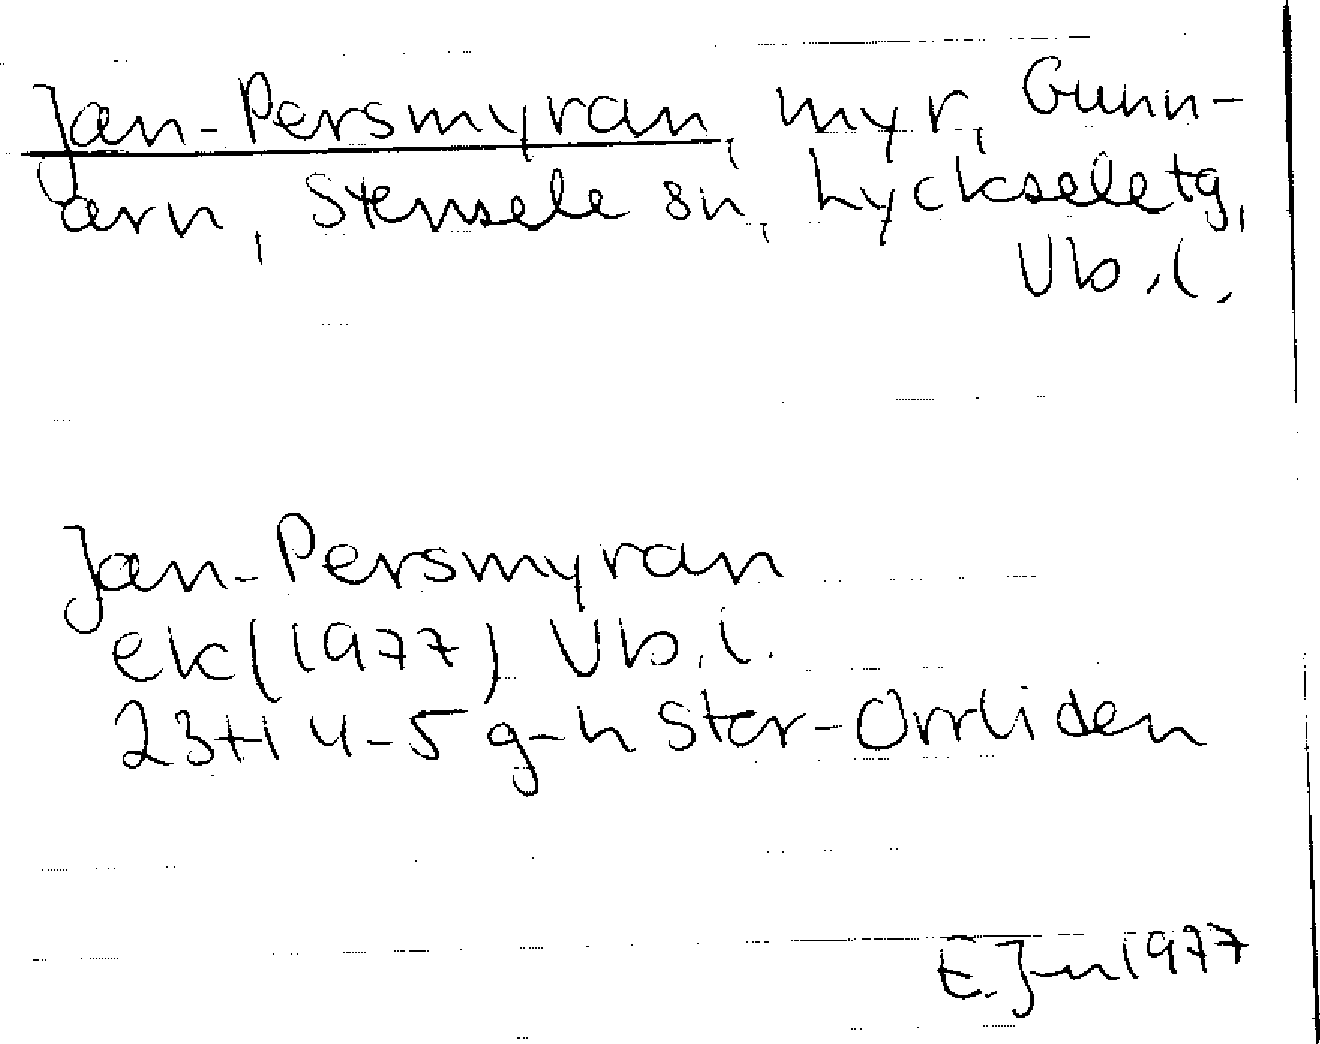 Jan-Persmyran, myr, Gunn-
arn, Stensele sn, Lyckseletg,
Vb.l.
Jan-Persmyran
ek (1977) Vb.l.
23H 4-5 g-h Stor-Orrliden
E.J-n 1977